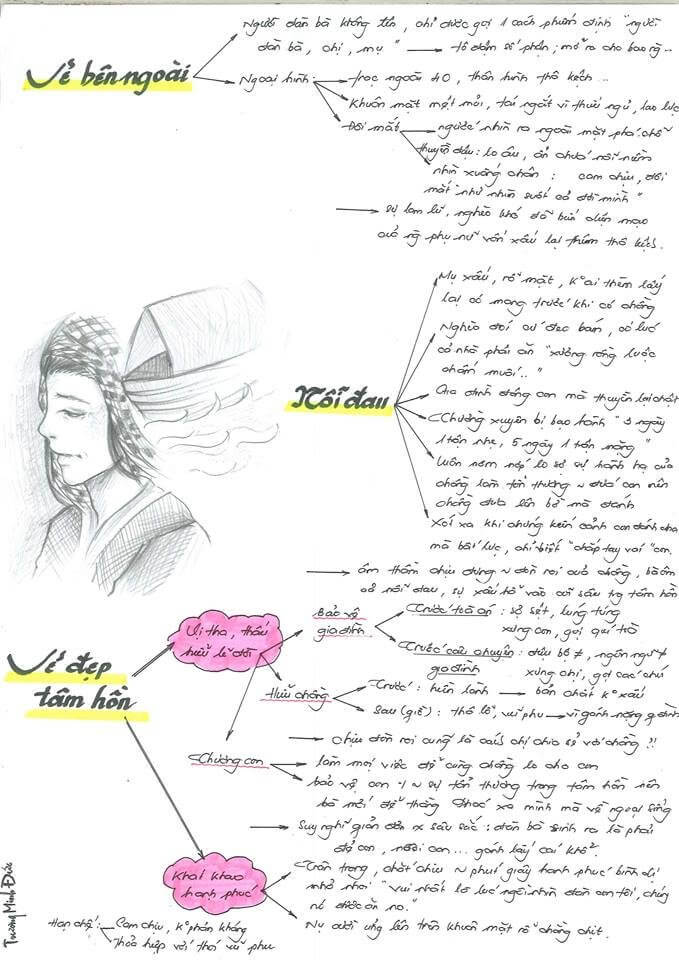 Vẻ bên ngoài
Người đàn bà không tên, chỉ được gọi 1 cách phiếm định "người
đàn bà, chị, mụ" → tô đậm số phận; mở ra cho bao ng~..
Ngoại hình: trạc ngoài 40, thân hình thô kệch...
Khuôn mặt mệt mỏi, tái ngắt vì thức ngủ, lao lực
Đôi mắt ngước nhìn ra ngoài mặt phá: chỗ
thuyền đậu: lo âu, ẩn chứa nỗi niềm
nhìn xuống chân: cam chịu, đôi
mắt "như nhìn suốt cả đời mình"
→ sự lam lũ, nghèo khó đã
ng phụ nữ vốn xấu lại thêm thô kệch.
Nỗi đau
Mụ xấu, rỗ mặt, k° ai thèm lấy
lại có mang trước khi có chồng
Nghèo đói cứ đeo bám, có lúc
cả nhà phải ăn "xương rồng luộc
chấm muối.."
Gia đình đông con mà thuyền lại chật
Thường xuyên bị bạo hành "3 ngày
1 trận nhẹ, 5 ngày 1 trận nặng"
Luôn nơm nớp lo sợ sự hành hạ của
chồng làm tổn thương ~ đứa con nên
chồng đưa lên bờ mà đánh
Xót xa khi chứng kiến cảnh con đánh cha
mà bất lực, chỉ biết "chắp tay vái" con.
→ âm thầm chịu đựng ~ đòn roi của chồng, bà ôm
cả nỗi đau, sự xấu hổ vào cõi sâu trg tâm hồn
Vẻ đẹp
tâm hồn
Vị tha, thấu
hiểu lẽ đời
Bảo vệ
gia đình
Trước toà án: sợ sệt, lúng túng
xưng con, gọi quí toà
Trước câu chuyện: điệu bộ ≠, ngôn ngữ ≠
gia đình xưng chị, gọi các chú
Hiểu chồng
Trước: hiền lành → bản chất k° xấu
Sau (giờ): thô lỗ, vũ phu → vì gánh nặng gđình
→ Chịu đòn roi cũng là cách chị chia sẻ với chồng !!
Thương con
làm mọi việc để cùng chồng lo cho con
bảo vệ con ~ sự tổn thương trong tâm hồn nên
bà mới để thằng Phác xa mình mà về ngoại sống
→ Suy nghĩ giản đơn x sâu sắc: đàn bà sinh ra là phải
đẻ con, nuôi con... gánh lấy cái khổ.
Khát khao
hạnh phúc
Trân trọng, chắt chiu ~ phút giây hạnh phúc bình dị
nhỏ nhoi "vui nhất là lúc ngồi nhìn đàn con tôi, chúng
nó được ăn no."
Nụ cười ửng lên trên khuôn mặt rỗ chằng chịt.
Hạn chế: Cam chịu, k° phản kháng
Thỏa hiệp với thói vũ phu
Tường Minh Đức